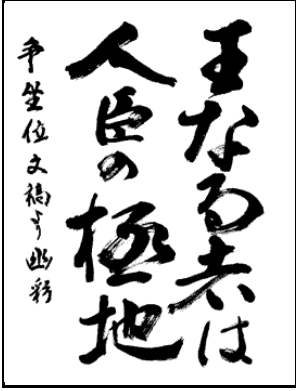 王なる者は
人臣の極地
争坐位文稿より 幽彩